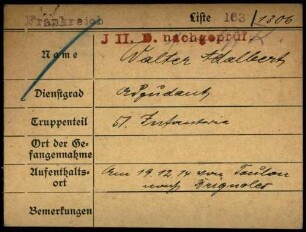 Frankreich Liste 163/1306
J II. D. nachgeprüf.
Name Walter Adalbert
Dienstgrad Adjudant
Truppenteil 51. Infanterie
Ort der Ge-
fangennahme
Aufenthalts-
ort Am 19.12.14 von Toulon
nach Brignoles
Bemerkungen